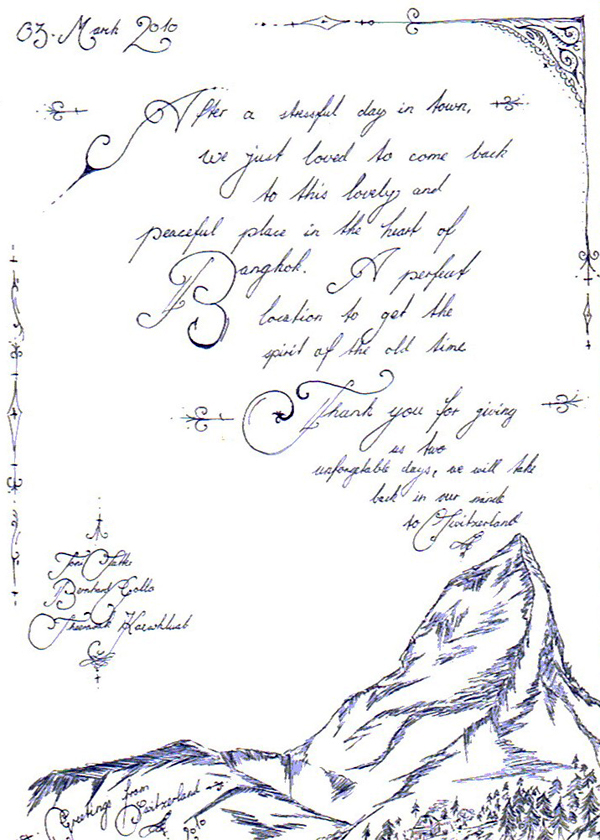 03. March 2010
After a stressful day in town,
we just loved to come back
to this lovely and
peaceful place in the heart of
Bangkok. A perfect
location to get the
spirit of the old time
Thank you for giving
us two
unforgetable days, we will take
back in our minds
to Switzerland
Toni
Bernhard
Greetings from
Switzerland
2010